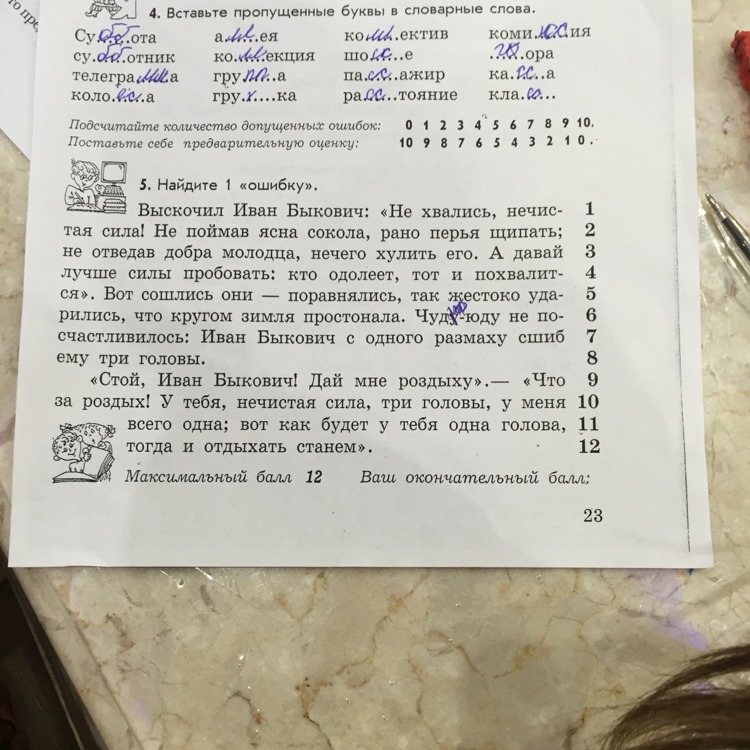 4. Вставьте пропущенные буквы в словарные слова.
Су..бб..ота а..лл..ея ко..лл..ектив коми..сс..ия
су..бб..отник ко..лл..екция шо..сс..е ....ора
телегра..мм..а гру..пп..а па..сс..ажир ка..сс..а
коло..сс..а гру......ка ра..сс..тояние кла..сс...
Подсчитайте количество допущенных ошибок: 0 1 2 3 4 5 6 7 8 9 10.
Поставьте себе предварительную оценку: 10 9 8 7 6 5 4 3 2 1 0.
5. Найдите 1 «ошибку».
Выскочил Иван Быкович: «Не хвались, нечис- 1
тая сила! Не поймав ясна сокола, рано перья щипать; 2
не отведав добра молодца, нечего хулить его. А давай 3
лучше силы пробовать: кто одолеет, тот и похвалит- 4
ся». Вот сошлись они — поравнялись, так жестоко уда- 5
рились, что кругом зимля простонала. Чуду-юду не по- 6
счастливилось: Иван Быкович с одного размаху сшиб 7
ему три головы. 8
«Стой, Иван Быкович! Дай мне роздыху».— «Что 9
за роздых! У тебя, нечистая сила, три головы, у меня 10
всего одна; вот как будет у тебя одна голова, 11
тогда и отдыхать станем». 12
Максимальный балл 12 Ваш окончательный балл:
23